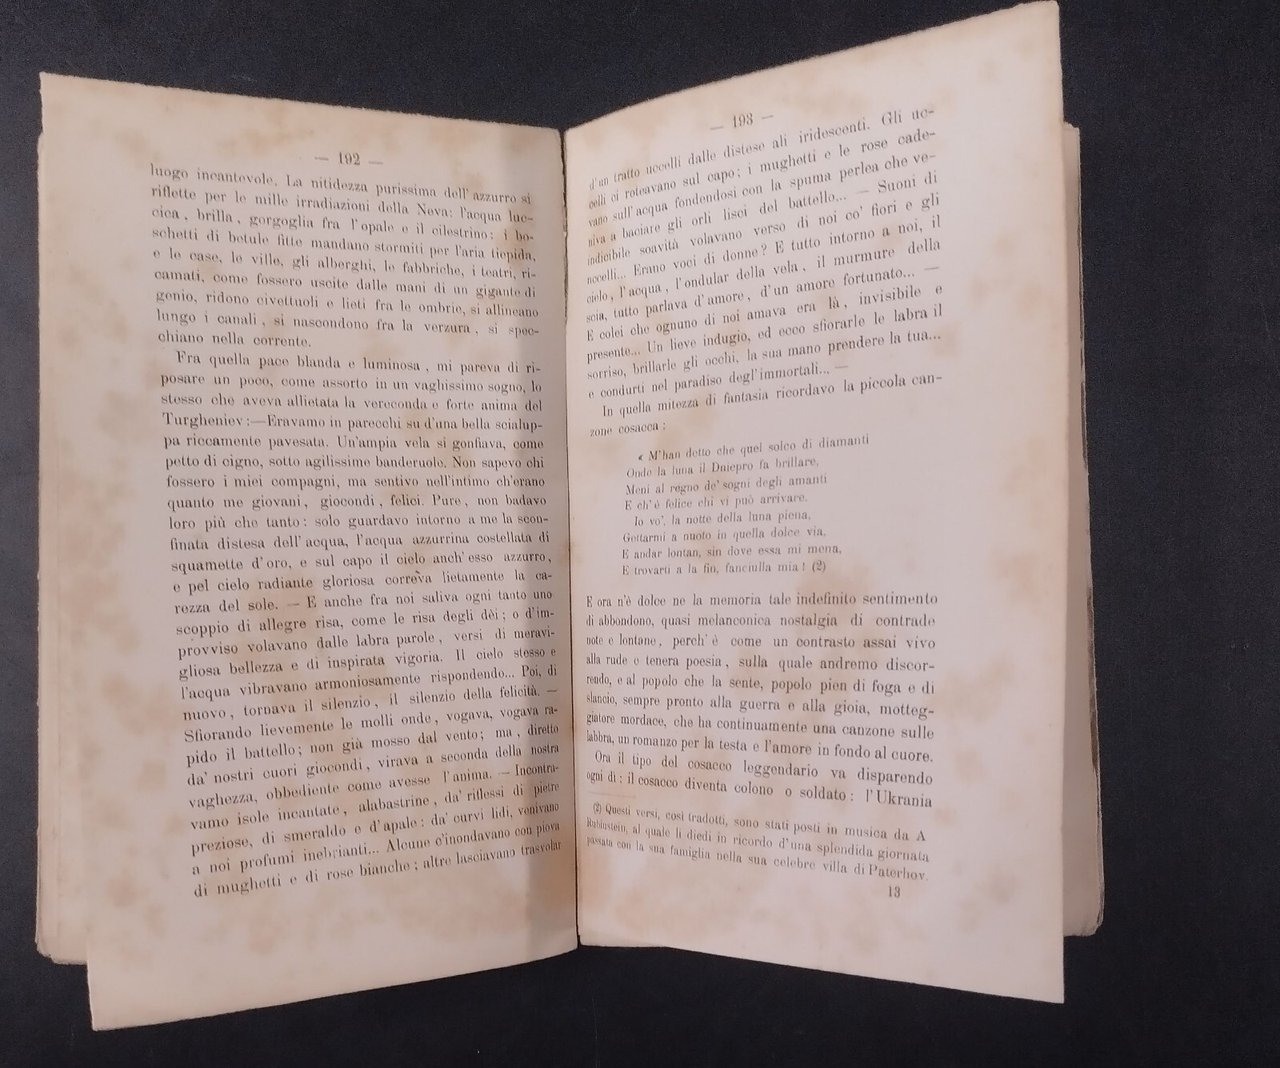 — 192 —
luogo incantevole. La nitidezza purissima dell'azzurro si
riflette per le mille irradiazioni della Neva: l'acqua luc-
cica, brilla, gorgoglia fra l'opale e il cilestrino; i bo-
schetti di betule fitte mandano stormiti per l'aria tiepida,
e le case, le ville, gli alberghi, le fabbriche, i teatri, ri-
camati, come fossero uscite dalle mani di un gigante di
genio, ridono civettuoli e lieti fra le ombrie, si allineano
lungo i canali, si nascondono fra la verzura, si spec-
chiano nella corrente.
Fra quella pace blanda e luminosa, mi pareva di ri-
posare un poco, come assorto in un vaghissimo sogno, lo
stesso che aveva allietata la vereconda e forte anima del
Turgheniev:—Eravamo in parecchi su d'una bella scialup-
pa riccamente pavesata. Un'ampia vela si gonfiava, come
petto di cigno, sotto agilissime banderuole. Non sapevo chi
fossero i miei compagni, ma sentivo nell'intimo ch'erano
quanto me giovani, giocondi, felici. Pure, non badavo
loro più che tanto: solo guardavo intorno a me la scon-
finata distesa dell'acqua, l'acqua azzurrina costellata di
squamette d'oro, e sul capo il cielo anch'esso azzurro,
e pel cielo radiante gloriosa correva lietamente la ca-
rezza del sole. — E anche fra noi saliva ogni tanto uno
scoppio di allegre risa, come le risa degli dèi; o d'im-
provviso volavano dalle labra parole, versi di meravi-
gliosa bellezza e di inspirata vigoria. Il cielo stesso e
l'acqua vibravano armoniosamente rispondendo... Poi, di
nuovo, tornava il silenzio, il silenzio della felicità. —
Sfiorando lievemente le molli onde, vogava, vogava ra-
pido il battello; non già mosso dal vento; ma, diretto
da' nostri cuori giocondi, virava a seconda della nostra
vaghezza, obbediente come avesse l'anima. — Incontra-
vamo isole incantate, alabastrine, da' riflessi di pietre
preziose, di smeraldo e d'apale: da' curvi lidi, venivano
a noi profumi inebrianti... Alcune c'inondavano con piova
di mughetti e di rose bianche; altre lasciavano trasvolar
— 193 —
d'un tratto uccelli dalle distese ali iridescenti. Gli uc-
celli ci roteavano sul capo; i mughetti e le rose cade-
vano sull'acqua fondendosi con la spuma perlea che ve-
niva a baciare gli orli lisci del battello... — Suoni di
indicibile soavità volavano verso di noi co' fiori e gli
uccelli... Erano voci di donne? E tutto intorno a noi, il
cielo, l'acqua, l'ondular della vela, il murmure della
scia, tutto parlava d'amore, d'un amore fortunato... —
E colei che ognuno di noi amava era là, invisibile e
presente... Un lieve indugio, ed ecco sfiorarle le labra il
sorriso, brillarle gli occhi, la sua mano prendere la tua...
e condurti nel paradiso degl'immortali... —
In quella mitezza di fantasia ricordavo la piccola can-
zone cosacca:
« M'han detto che quel solco di diamanti
Onde la luna il Dniepro fa brillare,
Meni al regno de' sogni degli amanti
E ch'è felice chi vi può arrivare.
Io vo', la notte della luna piena,
Gottarmi a nuoto in quella dolce via,
E andar lontan, sin dove essa mi mena,
E trovarti a la fin, fanciulla mia! (2)
E ora n'è dolce ne la memoria tale indefinito sentimento
di abbondono, quasi melanconica nostalgia di contrade
note e lontane, perch'è come un contrasto assai vivo
alla rude e tenera poesia, sulla quale andremo discor-
rendo, e al popolo che la sente, popolo pien di foga e di
slancio, sempre pronto alla guerra e alla gioia, motteg-
giatore mordace, che ha continuamente una canzone sulle
labbra, un romanzo per la testa e l'amore in fondo al cuore.
Ora il tipo del cosacco leggendario va disparendo
ogni dì: il cosacco diventa colono o soldato: l'Ukrania
(2) Questi versi, così tradotti, sono stati posti in musica da A
Rubinstein, al quale li diedi in ricordo d'una splendida giornata
passata con la sua famiglia nella sua celebre villa di Paterhov.
13